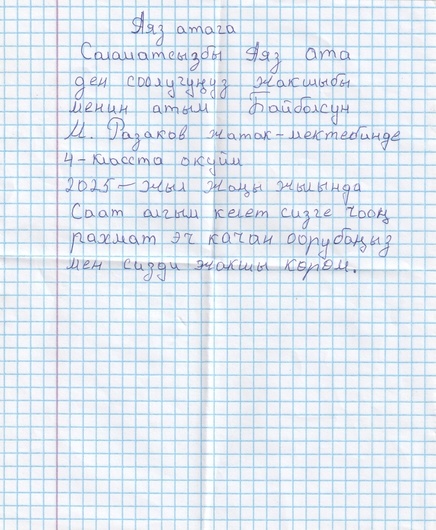 Аяз атага
Саламатсызбы Аяз ата
ден соолугуңуз жакшыбы
менин атым Байболсун
И. Разаков жатак-мектебинде
4-класста окуйм
2025-жыл Жаңы жылында
Саат алгым келет сизге чооң
рахмат эч качан оорубаңыз
мен сизди жакшы көрөм.